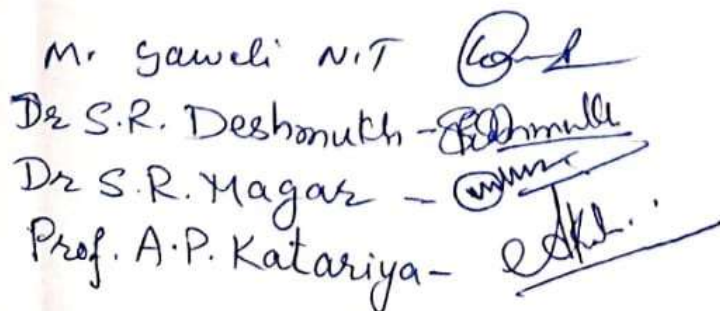 Mr. Gaweli N.T
Dr S.R. Deshmukh -
Dr S.R. Magar -
Prof. A.P. Katariya -